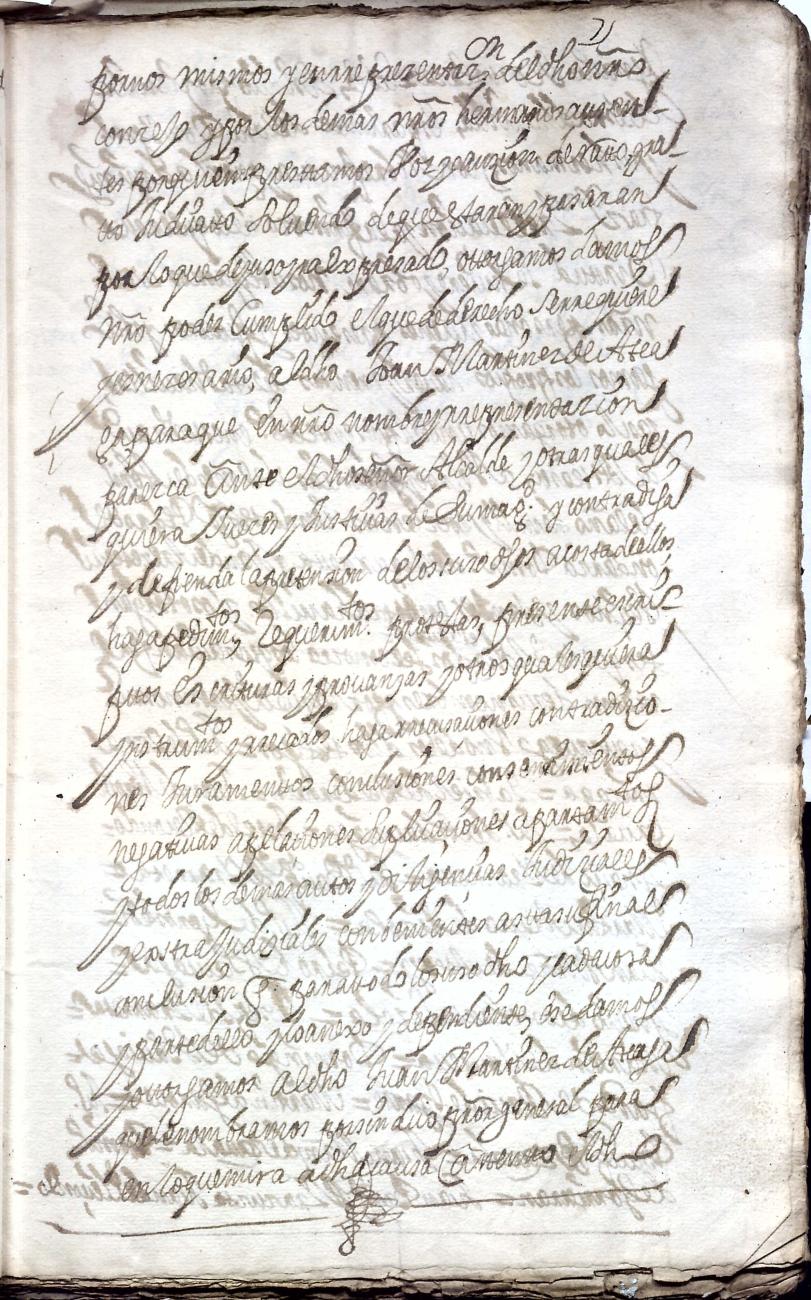 por nos mismos y en rrepresentaz.on del dho nro
conzejo y por los demas nros hermanos ausen-
tes por quien prestamos Boz y caucion de rato gra-
to Judicato Solvendo de que estaran y pasaran
por lo que de yuso yra expresado, otorgamos damos
nro poder Cumplido el que de derecho Se rrequiere
y es nezesario, a el dho Joan Martinez de Atea
para que en nro nombre y rrepresentazion
parezca Ante el dho señor Alcalde y otras quales
quiera Juezes y Justizias de Su mag.d y contradiga
y defienda la pretension de los suso dhos acosta de ellos
haga pedim.tos Requerim.tos protestas, presente escri-
ptos Escrituras y provanzas y otros quales quiera
ynstrum.tos y recados haga rrecusaziones contradizio-
nes Juramentos conclusiones consentimientos
negativas apelaziones Suplicaciones apartam.tos
y todos los demas autos y diligencias Judiciales
y extra Judiciales conbenientes asta su final
conclusion q. para todo lo suso dho y cada cosa
y parte dello y lo anexo y dependiente, ese damos
y otorgamos al dho Juan Martinez de Atea
y le nombramos por sindico pror general para
en lo que mira a dha causa Con entero